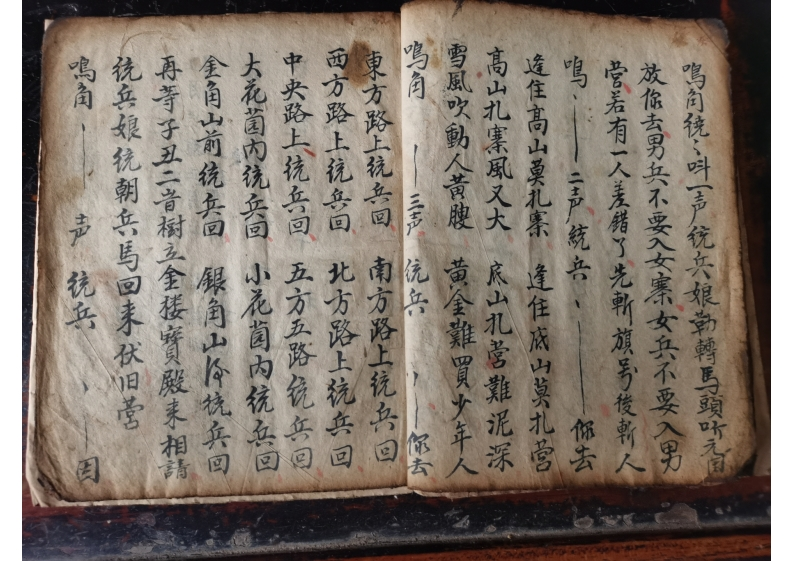 鳴角統〻叫一声統兵娘勒轉馬頭听元因
放你去男兵不要入女寨女兵不要入男
营若有一人差錯了先斬旗号後斬人
鳴丶二声統兵丶你去
逢住高山莫扎寨 逢住底山莫扎营
高山扎寨風又大 底山扎营難泥深
雪風吹動人黄膄 黄金難買少年人
鳴角 三声 統兵 丶你去
東方路上統兵回 南方路上統兵回
西方路上統兵回 北方路上統兵回
中央路上統兵回 五方五路統兵回
大花園内統兵回 小花園内統兵回
金角山前統兵回 銀角山後統兵回
再等子丑二音樹立金楼寶殿来相請
統兵娘統朝兵馬回来伏旧营
鳴角 声 統兵 丶回